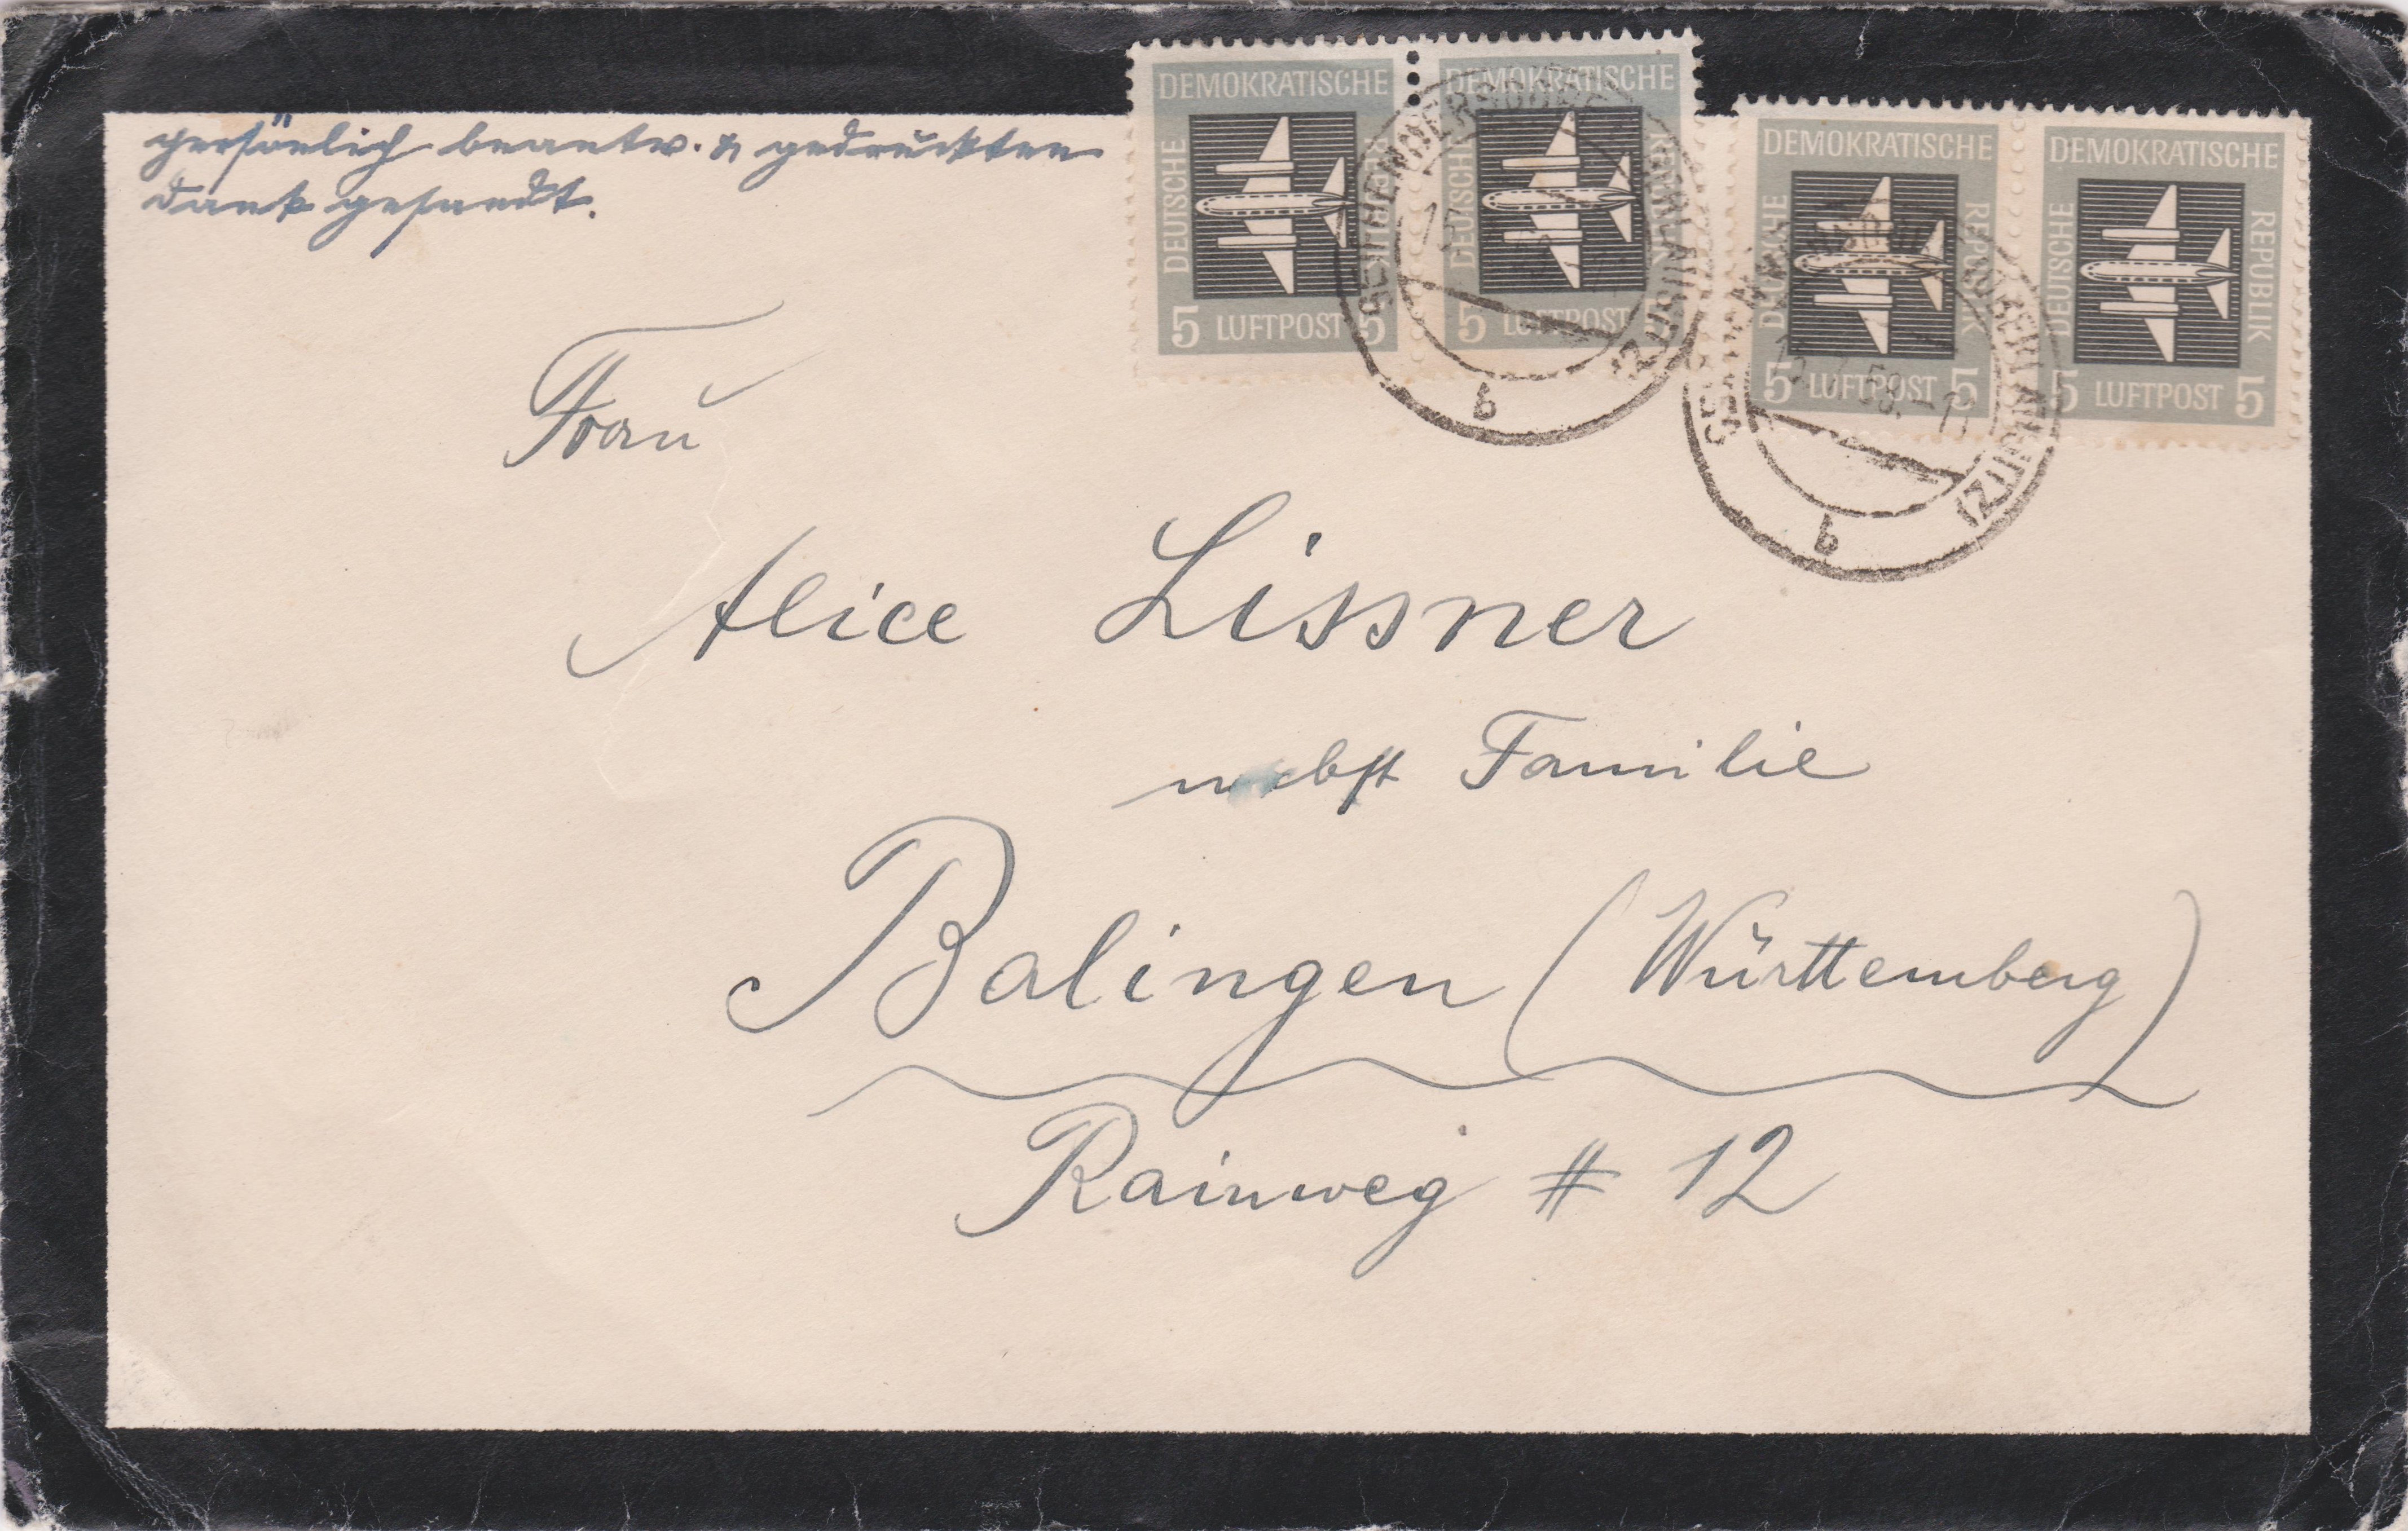 persönlich beantw. & gedruckten
Dank gesandt.
DEMOKRATISCHE
DEUTSCHE
REPUBLIK
5 LUFTPOST 5
DEMOKRATISCHE
DEUTSCHE
REPUBLIK
5 LUFTPOST 5
DEMOKRATISCHE
DEUTSCHE
REPUBLIK
5 LUFTPOST 5
DEMOKRATISCHE
DEUTSCHE
REPUBLIK
5 LUFTPOST 5
SEIFHENNERSDORF (OBERLAUSITZ)
b
(OBERLAUSITZ)
b
Frau
Alice Lissner
nebst Familie
Balingen (Württemberg)
Rainweg # 12